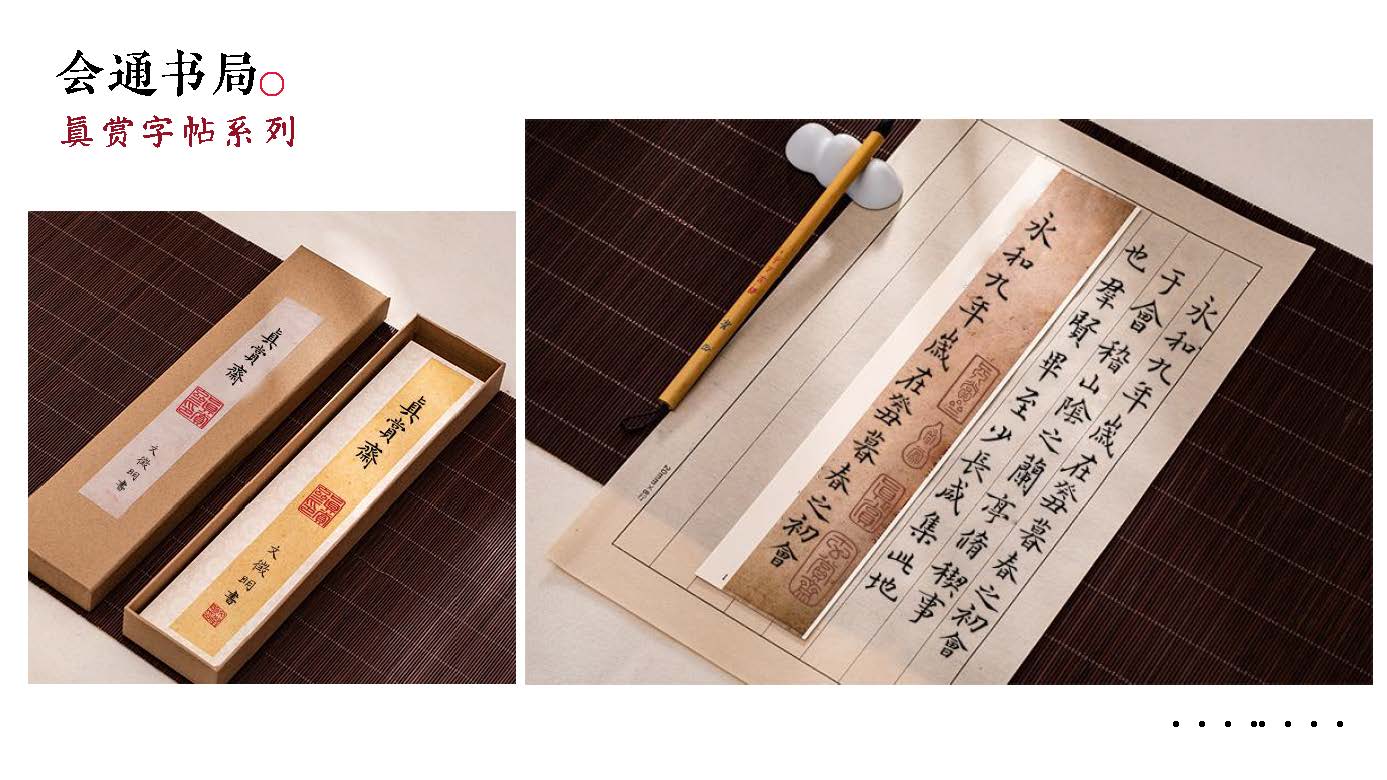 会通书局
眞赏字帖系列
眞賞齋
文徵明書
眞賞齋
文徵明書
永和九年歲在癸丑暮春之初會
于會稽山陰之蘭亭脩稧事
也羣賢畢至少長咸集此地
永和九年歲在癸丑暮春之初會